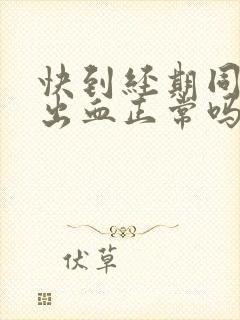 快到经期同
出血正常吗
伏草